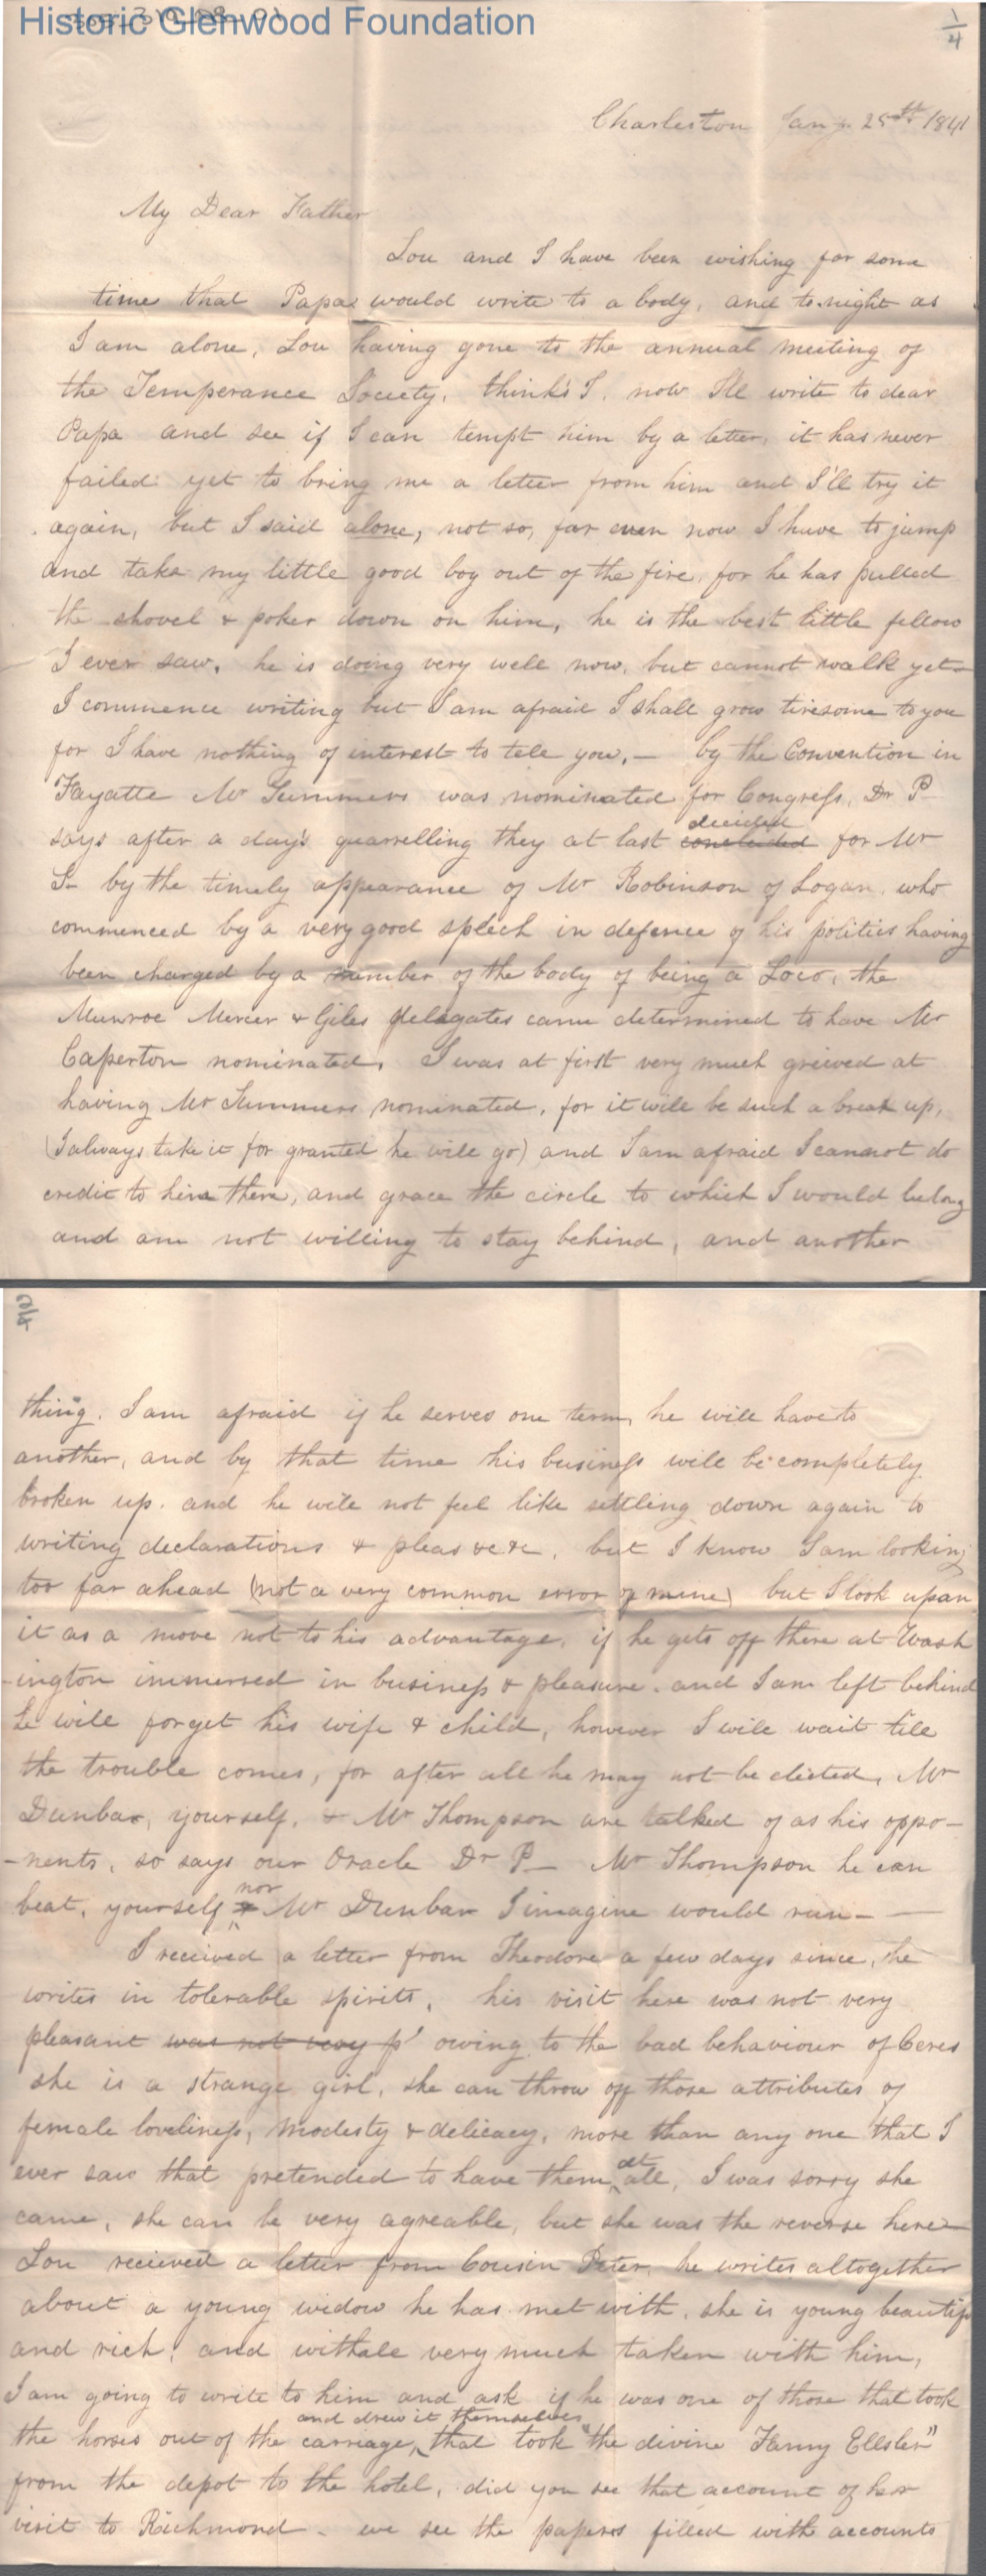 Historic Glenwood Foundation
1/4
Charleston Jany 25th 1841
My Dear Father
Lou and I have been wishing for some
time that Papa would write to a body, and to night as
I am alone, Lou having gone to the annual meeting of
the Temperance Society, thinks I, now I'll write to dear
Papa and see if I can tempt him by a letter, it has never
failed yet to bring me a letter from him and I'll try it
again, but I said alone, not so, for even now I have to jump
and take my little good boy out of the fire, for he has pulled
the shovel & poker down on him, he is the best little fellow
I ever saw, he is doing very well now, but cannot walk yet
I commence writing but I am afraid I shall grow tiresome to you
for I have nothing of interest to tell you, — by the Convention in
Fayatte Mr Summers was nominated for Congress, Dr P
says after a day's quarrelling they at last concluded decided for Mr
S- by the timely appearance of Mr Robinson of Logan, who
commenced by a very good speech in defence of his politics having
been charged by a member of the body of being a Loco, the
Munroe Mercer & Giles delegates came determined to have Mr
Caperton nominated, I was at first very much greived at
having Mr Summers nominated, for it will be such a break up,
(I always take it for granted he will go) and I am afraid I cannot do
credit to him there, and grace the circle to which I would belong
and am not willing to stay behind, and another
thing, I am afraid if he serves one term, he will have to
another, and by that time his business will be completely
broken up, and he will not feel like settling down again to
writing declarations & pleas &c &c, but I know I am looking
too far ahead (not a very common error of mine) but I look upon
it as a move not to his advantage, if he gets off there at Wash
-ington immersed in business & pleasure, and I am left behind
he will forget his wife & child, however I will wait till
the trouble comes, for after all he may not be elected, Mr
Dunbar, yourself, & Mr Thompson are talked of as his oppo-
-nents, so says our Oracle Dr P- Mr Thompson he can
beat, yourself & nor Mr Dunbar I imagine would run-
I received a letter from Theodore a few days since, he
writes in tolerable spirits, his visit here was not very
pleasant was not very p' owing to the bad behaviour of Ceres
she is a strange girl, she can throw off those attributes of
female loveliness, modesty & delicacy, more than any one that I
ever saw that pretended to have them at all, I was sorry she
came, she can be very agreable, but she was the reverse here
Lou recieved a letter from Cousin Peter, he writes altogether
about a young widow he has met with, she is young beautif
and rich, and withale very much taken with him,
I am going to write to him and ask if he was one of those that took
the horses out of the carriage, and drew it themselves that took "the divine Fanny Ellsler"
from the depot to the hotel, did you see that account of her
visit to Richmond - we see the papers filled with accounts